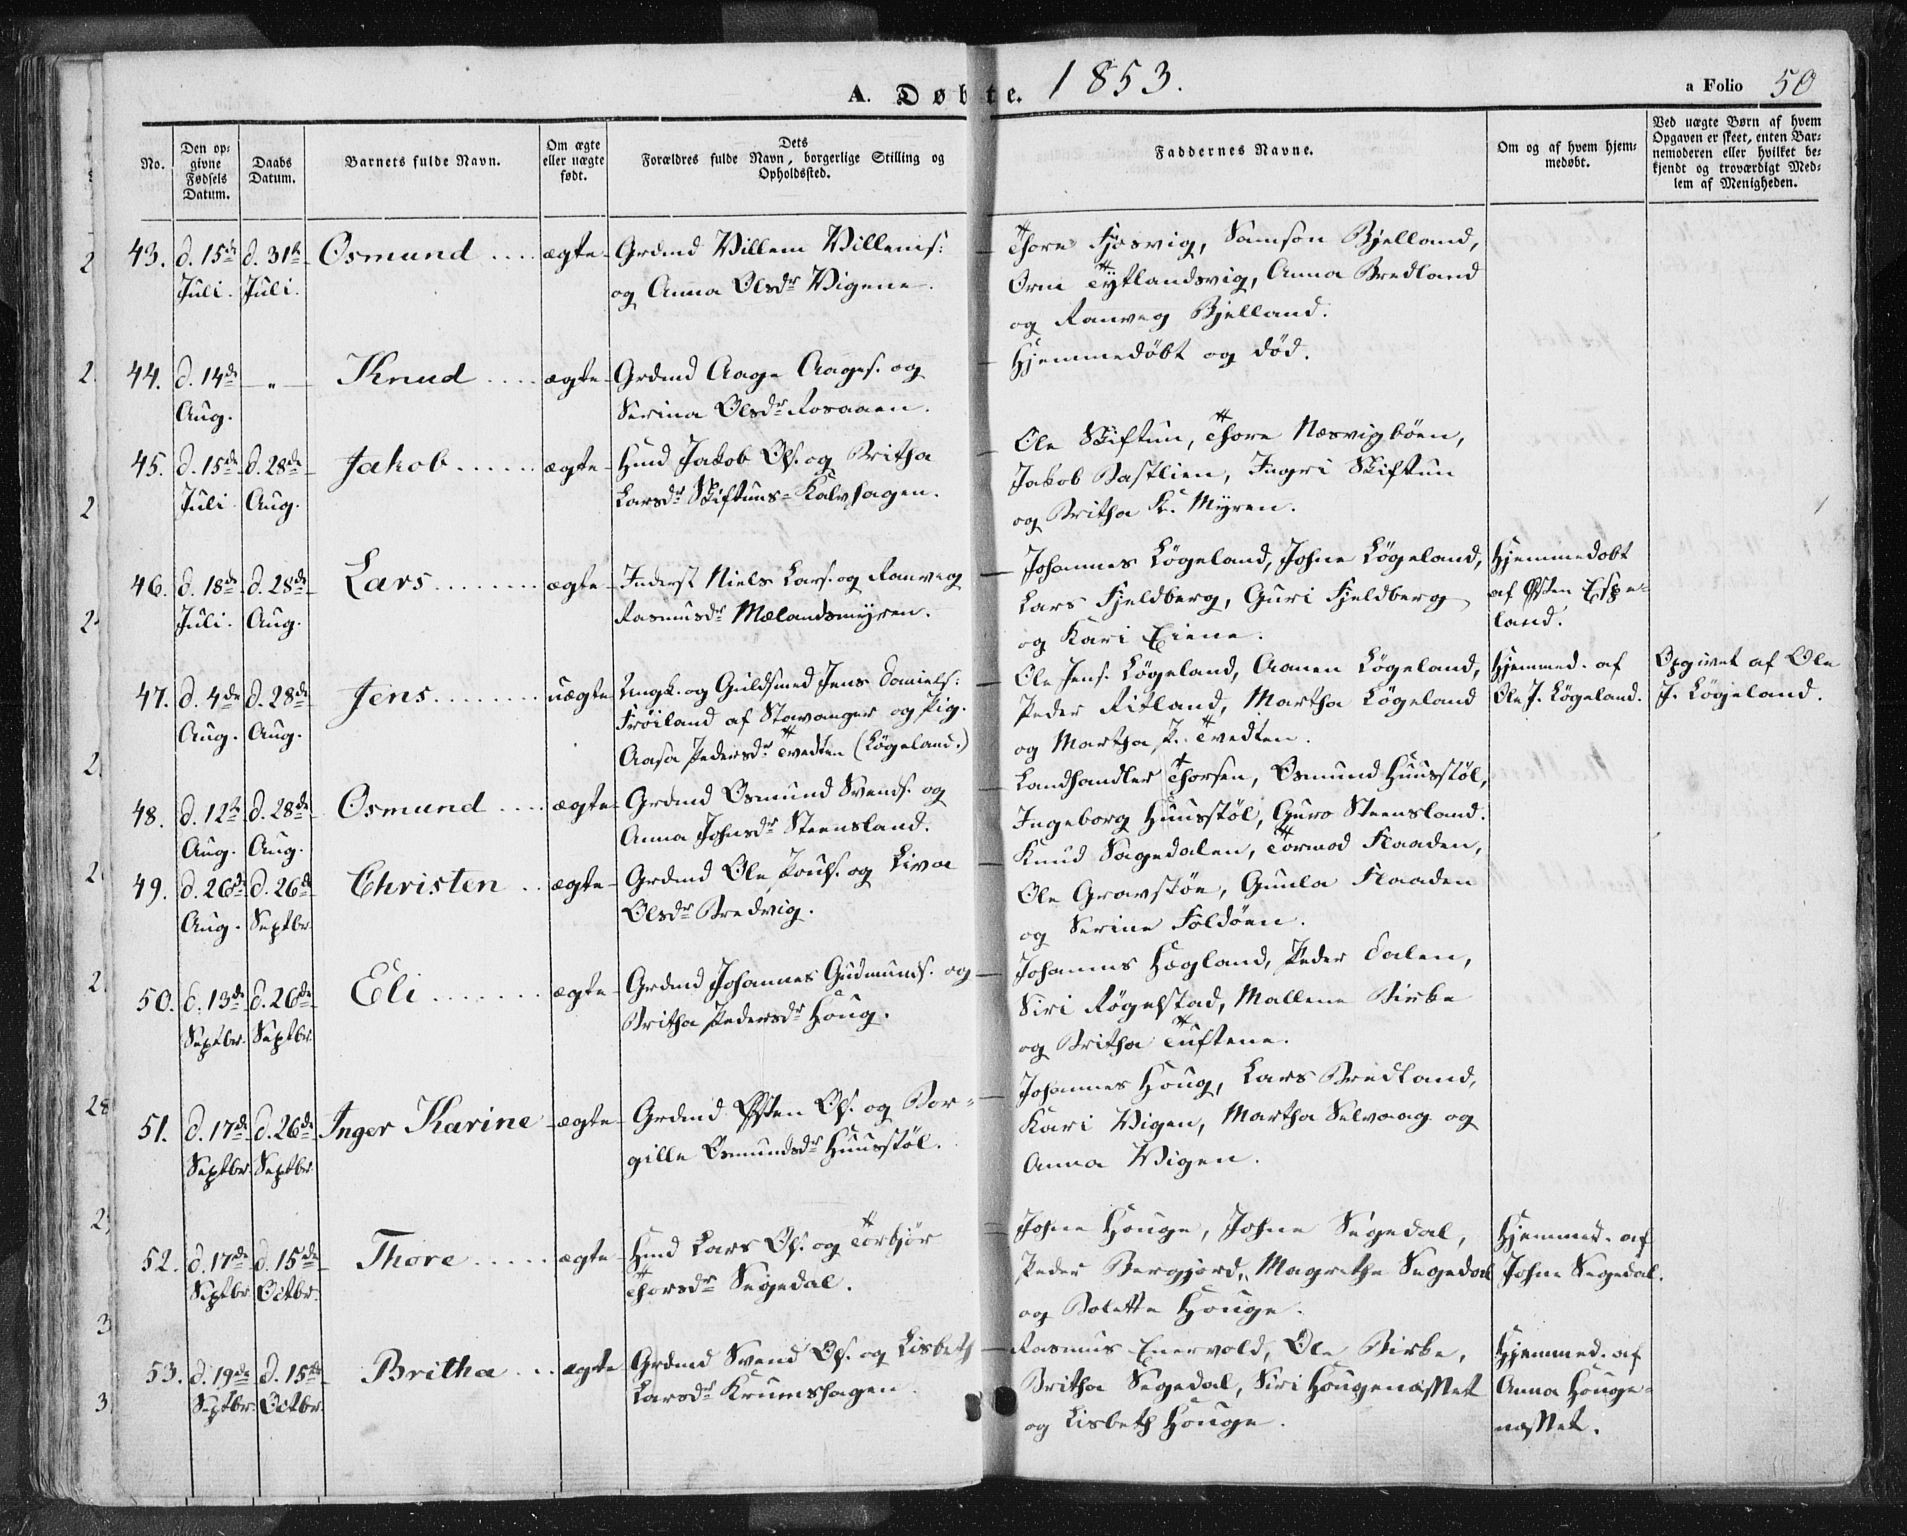 A. Døbte. 1853.
a Folio 50
No.
Den op-
givne
Fødsels
Datum.
Daabs
Datum.
Barnets fulde Navn.
Om ægte
eller uægte
født.
Dets
Forældres fulde Navn, borgerlige Stilling og
Opholdssted.
Faddernes Navne.
Om og af hvem hjem-
medøbt.
Ved uægte Børn af hvem
Opgaven er skeet, enten Bar-
nemoderen eller hvilket be-
kjendt og troværdigt Med-
lem af Menigheden.
43. d. 15de Juli. d. 31te Juli. Osmund .... ægte Grdmd Villem Villems:
og Anna Olsdr Vigene.
Thore Fjosvig, Samson Bjelland,
Orm Tytlandsvig, Anna Bredland
og Ranveg Bjelland.
44. d. 14de Aug. — „ — Knud .... ægte Grdmd Aage Aages. og
Serina Olsdr Rosaaen.
Hjemmedøbt og død.
45. d. 15de Juli d. 28de Aug. Jakob ...... ægte Hmd Jakob Ols. og Britha
Larsdr Skiftuns-Kalvhagen.
Ole Skiftun, Thore Næsvigbøen,
Jakob Bastlien, Ingri Skiftun
og Britha K. Myren.
46. d. 18de Juli. d. 28de Aug. Lars ........ ægte Inderst Niels Lars. og Ranveg
Rasmusdr Mælandsmyren.
Johannes Løgeland, Johne Løgeland,
Lars Fjeldberg, Guri Fjeldberg
og Kari Eiene.
Hjemmedøbt
af Østen Espe-
land.
47. d. 4de Aug. d. 28de Aug. Jens ........ uægte Ungk. og Guldsmed Jens Daniels:
Frøiland af Stavanger og Pig.
Aasa Pedersdr Tvedten (Løgeland.)
Ole Jens. Løgeland, Aanen Løgeland,
Peder Ritland, Martha Løgeland
og Martha P. Tvedten.
Hjemmed. af
Ole J. Løgeland.
Opgivet af Ole
J. Løgeland.
48. d. 12te Aug. d. 28de Aug. Osmund .... ægte Grdmd Osmund Svends. og
Anna Johnsdr Steensland.
Landhandler Thorsen, Osmund Huusstøl,
Ingeborg Huusstøl, Guro Steensland.
49. d. 26de Aug. d. 26de Septbr Christen .. ægte Grdmd Ole Pouls. og Liva
Olsdr Bredvig.
Knud Sagedalen, Tormod Flaaden,
Ole Gravstøe, Gunla Flaaden
og Serine Foldøen.
50. d. 13de Septbr. d. 26de Septbr Eli ....... ægte Grdmd Johannes Gudmunds. og
Britha Pedersdr Houg.
Johannes Hogland, Peder Dalen,
Siri Røgelstad, Mallene Birke
og Britha Tuftene.
51. d. 17de Septbr. d. 26de Septbr. Inger Karine ægte Grdmd Østen Ols. og Bor-
gille Osmundsdr Huusstøl.
Johannes Houg, Lars Bredland,
Kari Vigen, Martha Selvaag og
Anna Vigen.
52. d. 17de Septbr d. 15de Octbr. Thore ..... ægte Hmd Lars Ols. og Torbjør
Thorsdr Segedal.
Johne Houge, Johne Segedal,
Peder Bergjord, Magrethe Segedal
og Bolette Houge.
Hjemmed. af
Johne Segedal.
53. d. 19de Septbr. d. 15de Octbr. Britha ... ægte Grdmd Svend Ols. og Lisbeth
Larsdr Krumshagen.
Rasmus Enervold, Ole Birke,
Britha Segedal, Siri Hougenæsset
og Lisbeth Houge.
Hjemmed. af
Anna Houge-
næsset.